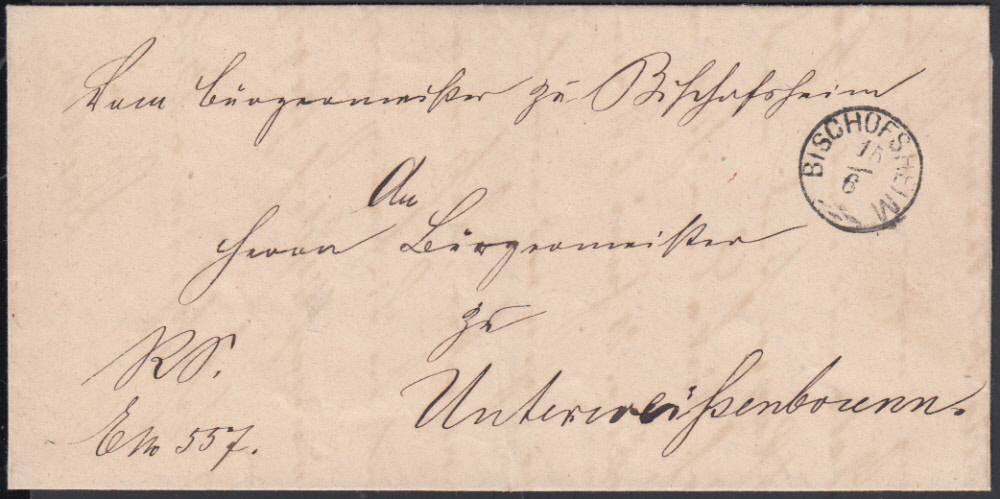 Vom Bürgermeister zu Bischofsheim
BISCHOFSHEIM
15
6
An
Herrn Bürgermeister
zu
Unterweißenbrunn.
RS.
557.